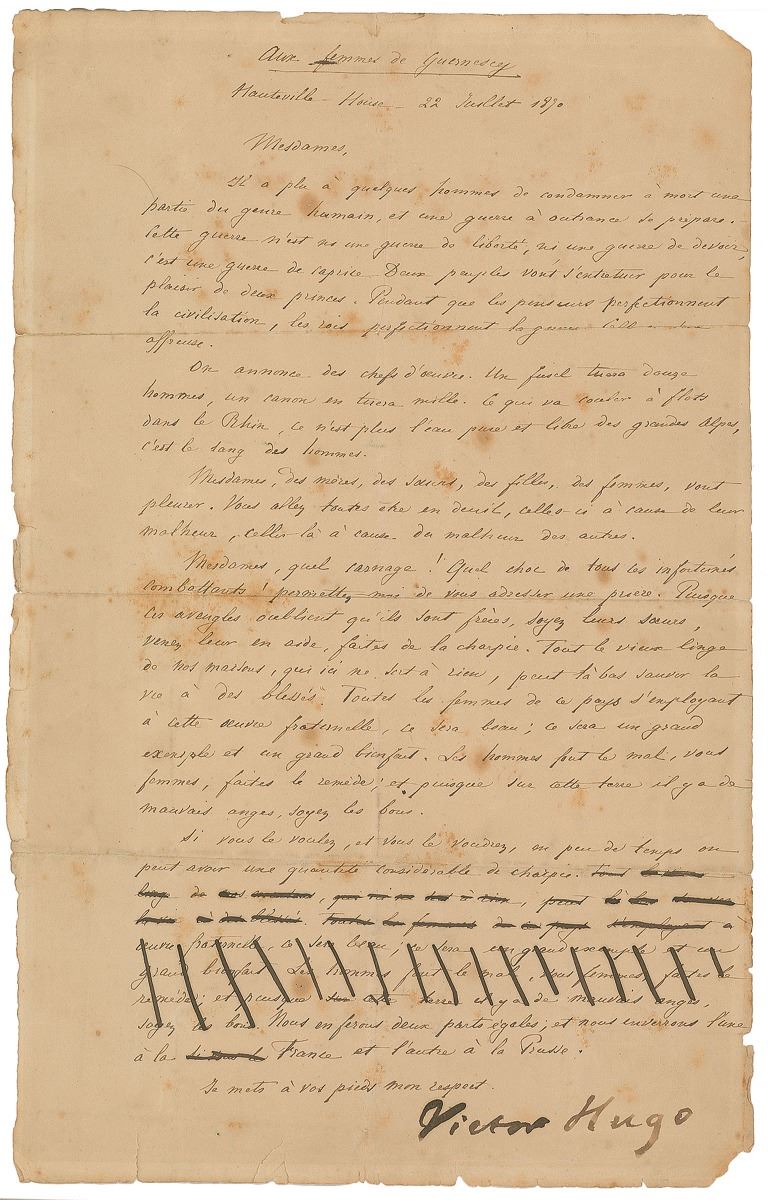 Aux femmes de Guernesey
Hauteville - House - 22 Juillet 1870
Mesdames,
Il a plu à quelques hommes de condamner à mort une
partie du genre humain, et une guerre à outrance se prépare.
Cette guerre n'est ni une guerre de liberté, ni une guerre de devoir,
c'est une guerre de caprice. Deux peuples vont s'entretuer pour le
plaisir de deux princes. Pendant que les penseurs perfectionnent
la civilisation, les rois perfectionnent la guerre.
affreuse.
On annonce des chefs d'œuvre. Un fusil tuera douze
hommes, un canon en tuera mille. Ce qui va couler à flots
dans le Rhin, ce n'est plus l'eau pure et libre des grandes Alpes,
c'est le sang des hommes.
Mesdames, des mères, des sœurs, des filles, des femmes, vont
pleurer. Vous allez toutes être en deuil, celles-ci à cause de leur
malheur, celles-là à cause du malheur des autres.
Mesdames, quel carnage ! Quel choc de tous les infortunés
combattants ! permettez moi de vous adresser une prière. Puisque
ces aveugles oublient qu'ils sont frères, soyez leurs sœurs,
venez leur en aide, faites de la charpie. Tout le vieux linge
de nos maisons, qui ici ne sert à rien, peut là bas sauver la
vie à des blessés. Toutes les femmes de ce pays s'employant
à cette œuvre fraternelle, ce sera beau ; ce sera un grand
exemple et un grand bienfait. Les hommes font le mal, vous
femmes, faites le remède ; et puisque sur cette terre il y a de
mauvais anges, soyez les bons.
Si vous le voulez, et vous le voudrez, en peu de temps on
peut avoir une quantité considérable de charpie. Tout le vieux
linge de nos maisons, qui ici ne sert à rien, peut là bas sauver
la vie à des blessés. Toutes les femmes de ce pays s'employant à
œuvre fraternelle, ce sera beau ; ce sera un grand exemple et un
grand bienfait. Les hommes font le mal, vous femmes, faites le
remède ; et puisque sur cette terre il y a de mauvais anges,
soyez les bons Nous en ferons deux parts égales ; et nous enverrons l'une
à la France et l'autre à la Prusse.
Je mets à vos pieds mon respect.
Victor Hugo